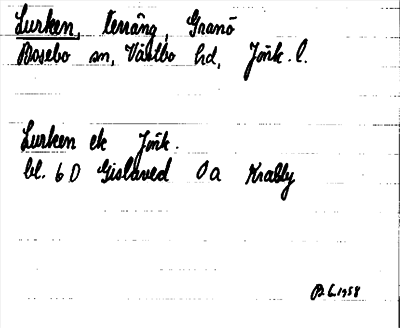 Lurken, terräng, Granö
Bosebo sn, Västbo hd, Jönk. l.
Lurken ek Jönk.
bl. 6 D Gislaved 0 a Krably
B. L. 1958